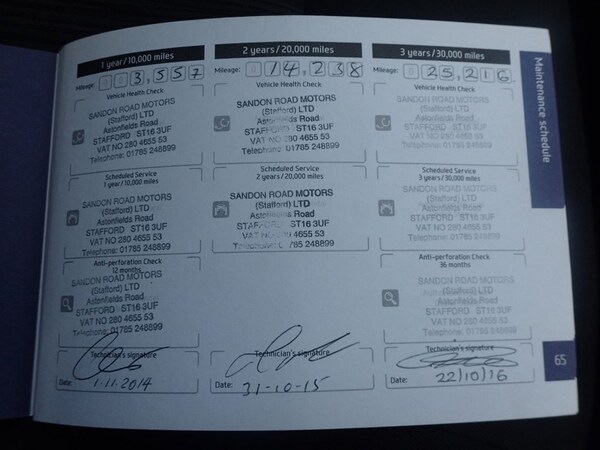 1 year/10,000 miles
Mileage: 3,557
Vehicle Health Check
SANDON ROAD MOTORS
(Stafford) LTD
Astonfields Road
STAFFORD ST16 3UF
VAT NO 280 4655 53
Telephone: 01785 248899
Scheduled Service
1 year/10,000 miles
SANDON ROAD MOTORS
(Stafford) LTD
Astonfields Road
STAFFORD ST16 3UF
VAT NO 280 4655 53
Telephone: 01785 248899
Anti-perforation Check
12 months
SANDON ROAD MOTORS
(Stafford) LTD
Astonfields Road
STAFFORD ST16 3UF
VAT NO 280 4655 53
Telephone: 01785 248899
Technician's signature
Date: 1-11-2014
2 years/20,000 miles
Mileage: 14,238
Vehicle Health Check
SANDON ROAD MOTORS
(Stafford) LTD
Astonfields Road
STAFFORD ST16 3UF
VAT NO 280 4655 53
Telephone: 01785 248899
Scheduled Service
2 years/20,000 miles
SANDON ROAD MOTORS
(Stafford) LTD
Astonfields Road
STAFFORD ST16 3UF
VAT NO 280 4655 53
Telephone: 01785 248899
Technician's signature
Date: 31-10-15
3 years/30,000 miles
Mileage: 25,216
Vehicle Health Check
SANDON ROAD MOTORS
(Stafford) LTD
Astonfields Road
STAFFORD ST16 3UF
VAT NO 280 4655 53
Telephone: 01785 248899
Scheduled Service
3 years/30,000 miles
SANDON ROAD MOTORS
(Stafford) LTD
Astonfields Road
STAFFORD ST16 3UF
VAT NO 280 4655 53
Telephone: 01785 248899
Anti-perforation Check
36 months
SANDON ROAD MOTORS
(Stafford) LTD
Astonfields Road
STAFFORD ST16 3UF
VAT NO 280 4655 53
Telephone: 01785 248899
Technician's signature
Date: 22/10/16
Maintenance schedule
65